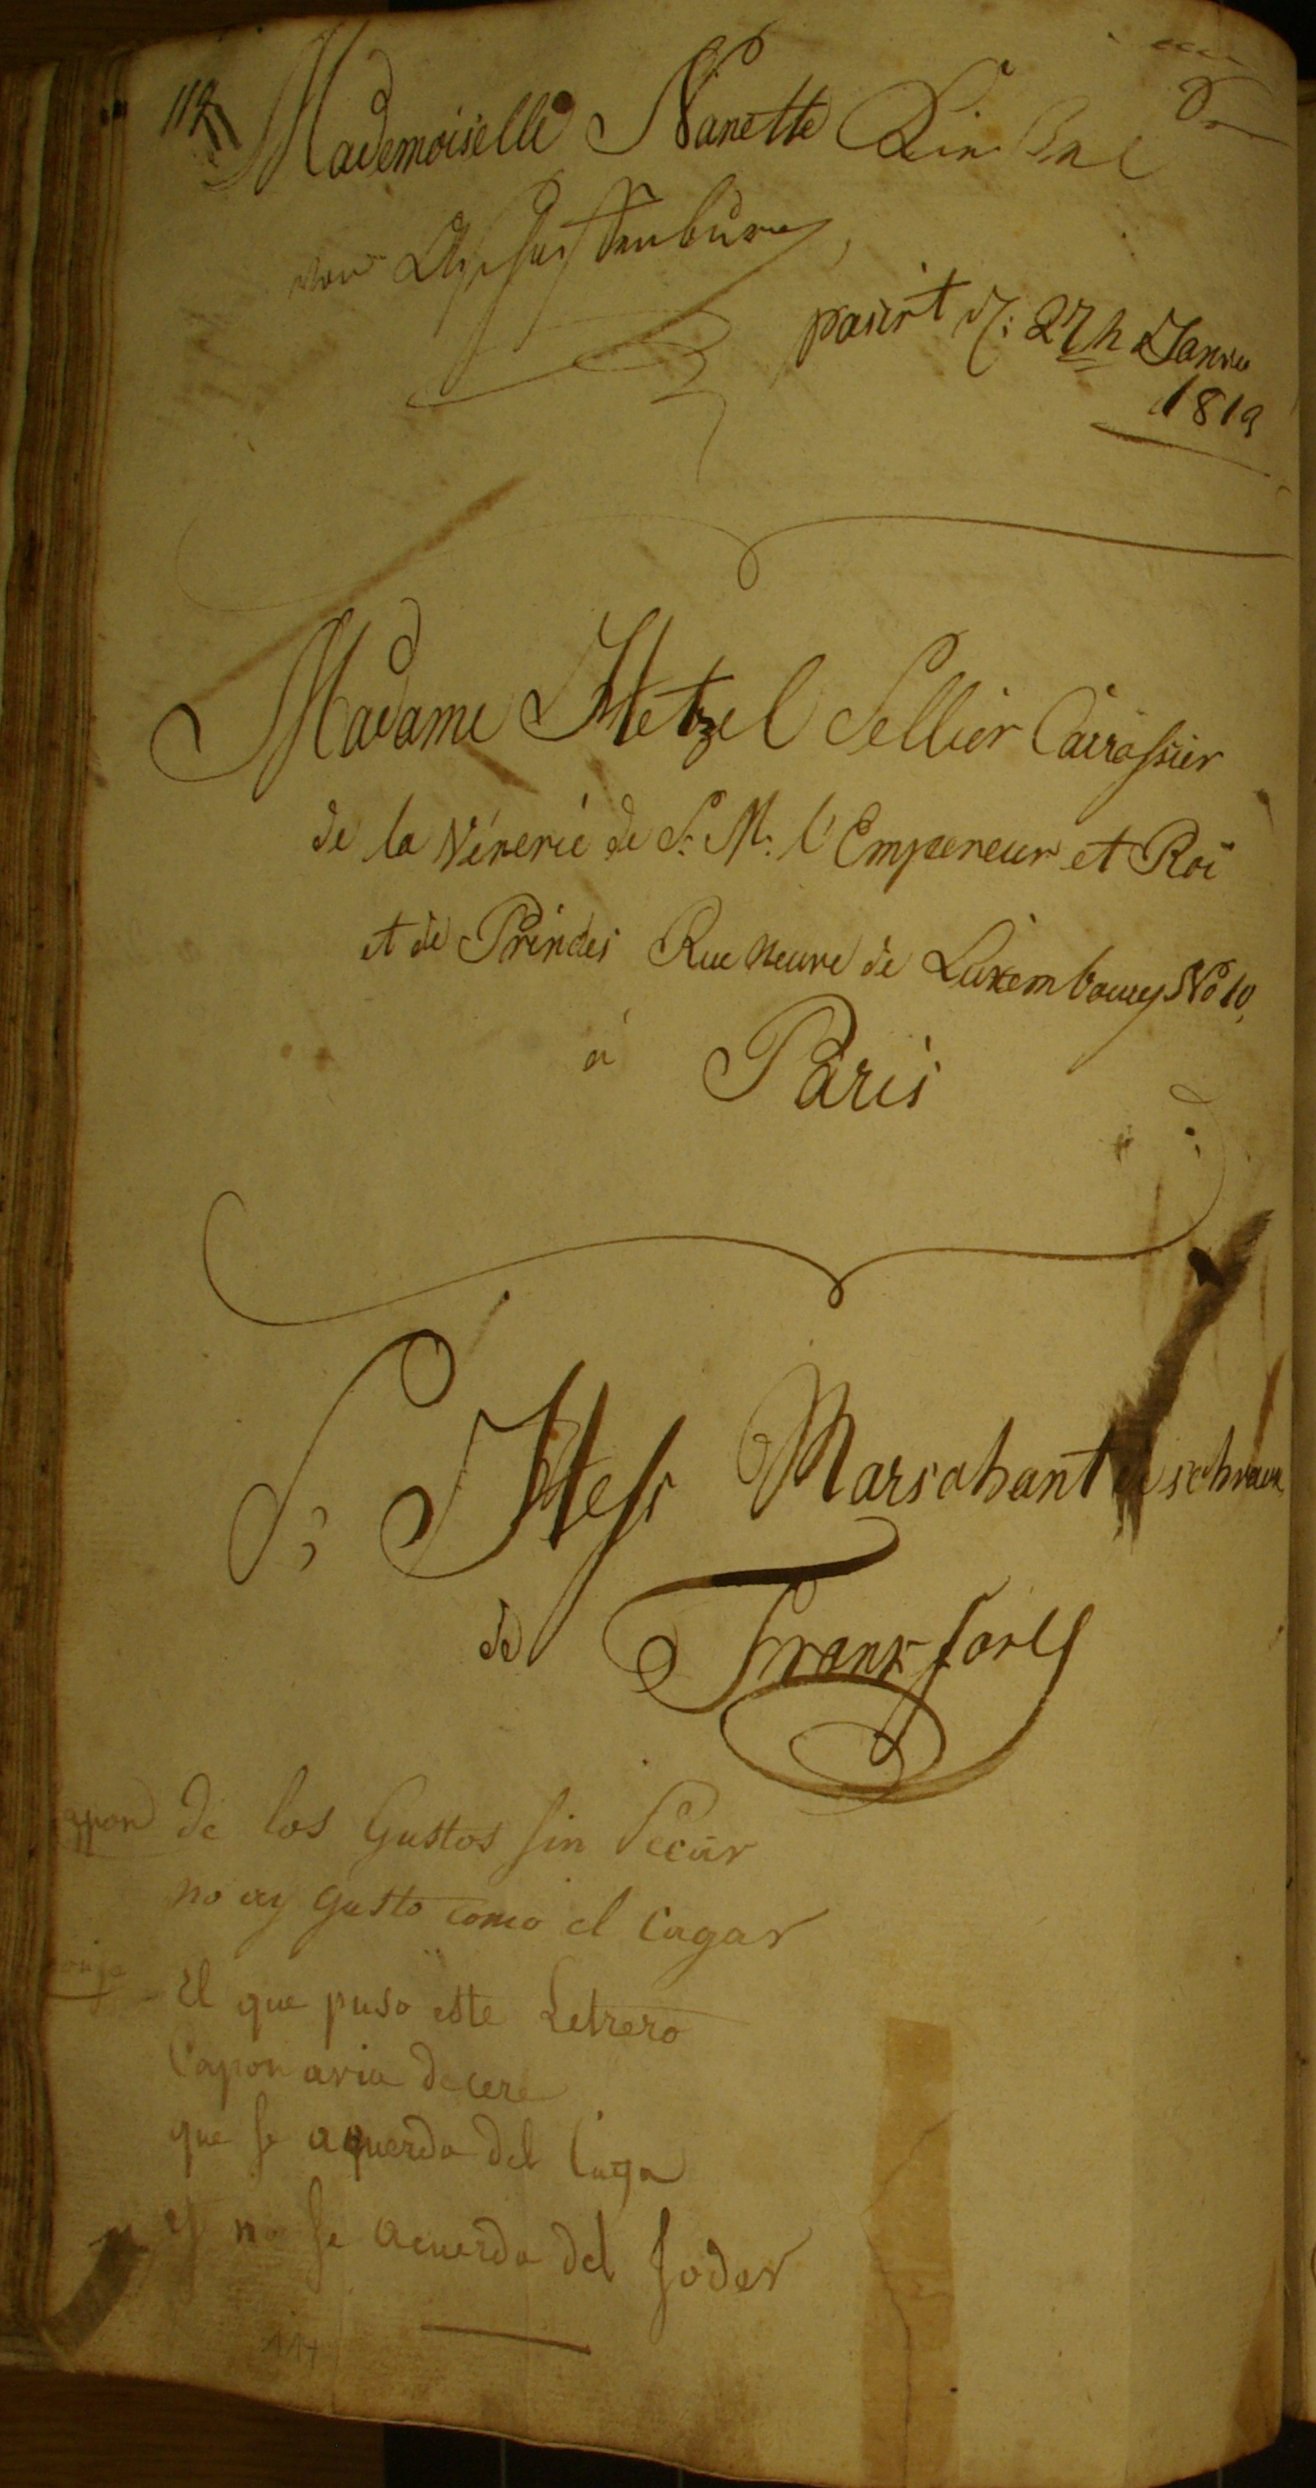 112
Mademoiselle Nanette
von Aschaffenburg
pasirt d: 27 Janvie
1819
Madame Hetzel Sellier Cairossier
de la Vénerie de S. M. l'Empereur et Roi
et de Princes Rue neuve de Luxembourg No 10,
à Paris
Hess Marschant
de Frankfort
de los Gustos sin Pecar
no ay gusto como el Cagar
El que puso este Letrero
Capon avia de cere
que se aquerda del Caga
y no se acuerda del Joder
114